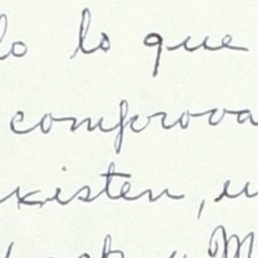 lo lo que
comprova
xisten, u
M